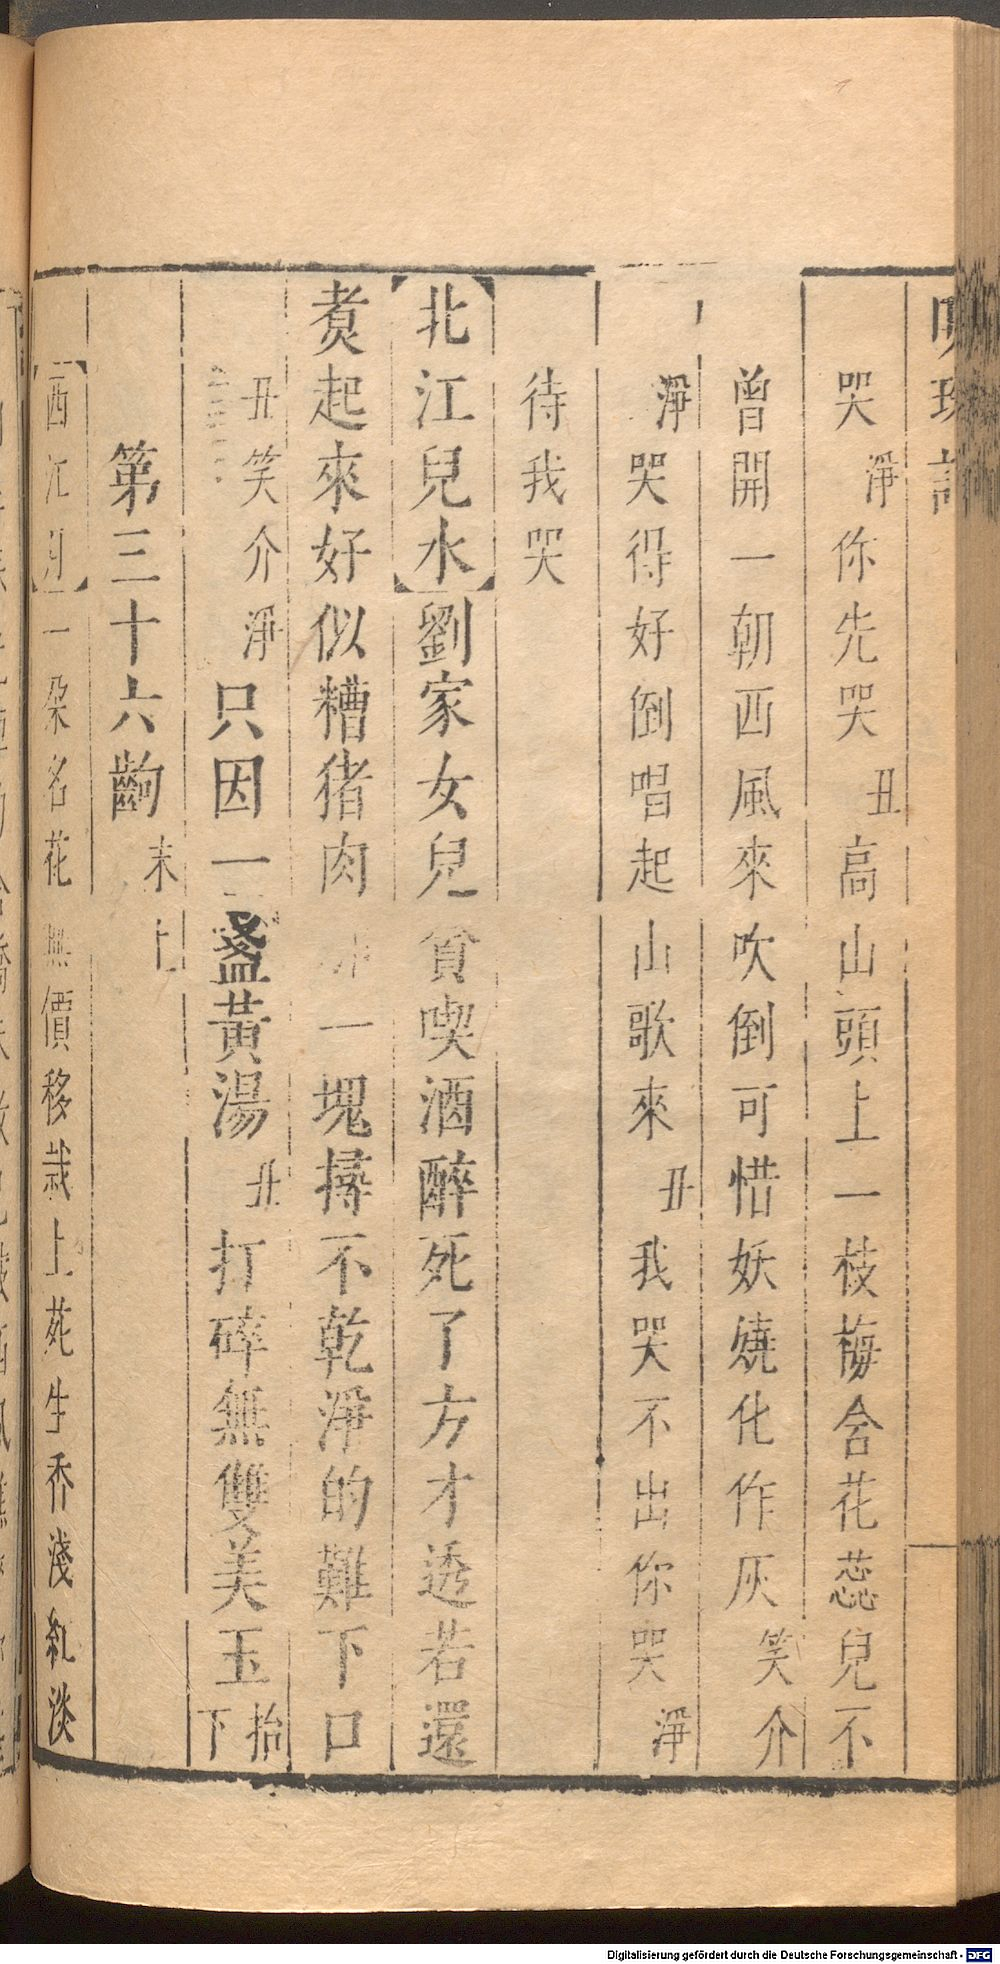 哭 淨 你先哭 丑 高山頭上一枝梅含花蕊兒不
曾開一朝西風來吹倒可惜妖燒化作灰 笑介
淨 哭得好倒唱起山歌來 丑 我哭不出你哭 淨
待我哭
【北江兒水】劉家女兒貪喫酒醉死了方才透若還
煑起來好似糟猪肉 一塊撏不乾淨的難下口
丑笑介 淨 只因一盞黃湯 丑 打碎無雙美玉 抬下
第三十六齣 末上
【西江月】一朶名花無價移栽上苑生香淺紅淡
Digitalisierung gefördert durch die Deutsche Forschungsgemeinschaft - DFG